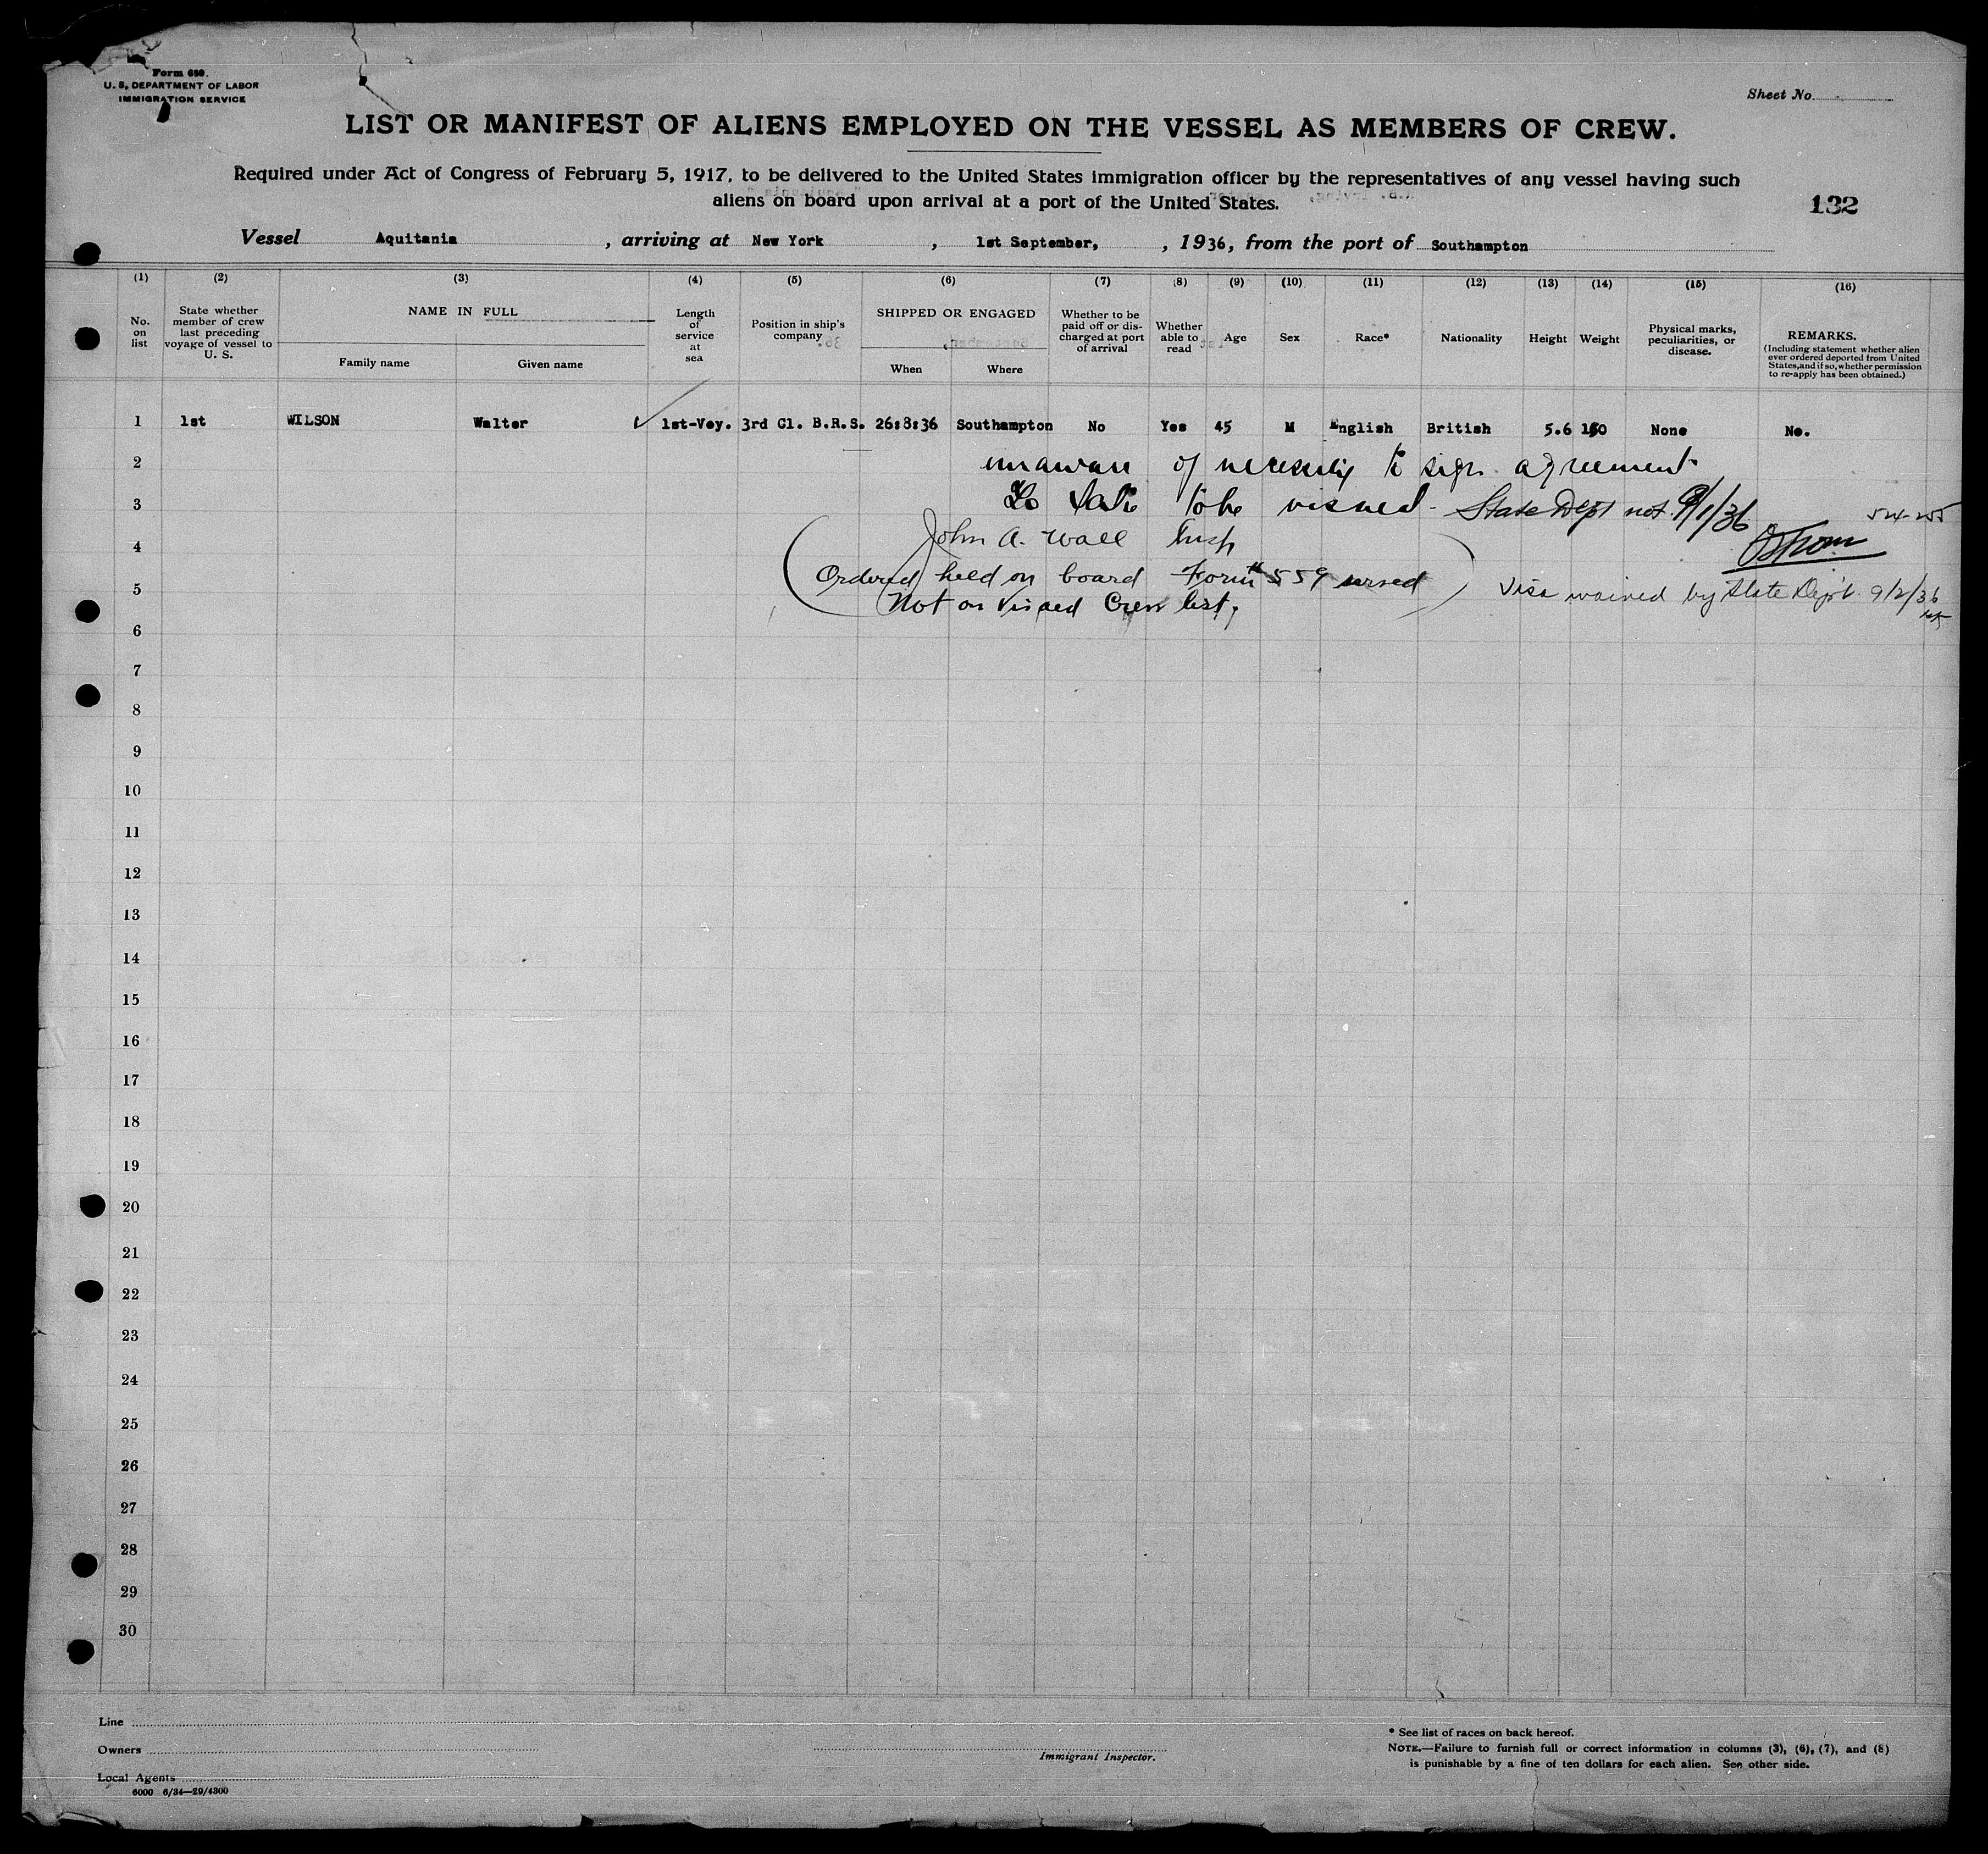 Form 680.
U. S. DEPARTMENT OF LABOR
IMMIGRATION SERVICE
Sheet No.
LIST OR MANIFEST OF ALIENS EMPLOYED ON THE VESSEL AS MEMBERS OF CREW.
Required under Act of Congress of February 5, 1917, to be delivered to the United States immigration officer by the representatives of any vessel having such
aliens on board upon arrival at a port of the United States.
132
Vessel Aquitania, arriving at New York, 1st September, , 1936, from the port of Southampton
(1) (2) (3) (4) (5) (6) (7) (8) (9) (10) (11) (12) (13) (14) (15) (16)
No. on list
State whether member of crew last preceding voyage of vessel to U. S.
NAME IN FULL
Family name
Given name
Length of service at sea
Position in ship's company
SHIPPED OR ENGAGED
When
Where
Whether to be paid off or discharged at port of arrival
Whether able to read
Age
Sex
Race*
Nationality
Height
Weight
Physical marks, peculiarities, or disease.
REMARKS.
(Including statement whether alien ever ordered deported from United States, and if so, whether permission to re-apply has been obtained.)
1 1st WILSON Walter 1st-Voy. 3rd Cl. B.R.S. 26:8:36 Southampton No Yes 45 M English British 5.6 150 None No.
2 unaware of necessity to sign agreement
3 to be visaed - State Dept not. 9/1/36
4 John A. Wall Insp
5 (Ordered held on board Form # 559 served) Visa waived by State Dep't. 9/2/36
Not on visaed Crew list,
6
7
8
9
10
11
12
13
14
15
16
17
18
19
20
21
22
23
24
25
26
27
28
29
30
Line
Owners
Local Agents
6000 6/34—29/4300
Immigrant Inspector.
* See list of races on back hereof.
NOTE.—Failure to furnish full or correct information in columns (3), (6), (7), and (8)
is punishable by a fine of ten dollars for each alien. See other side.